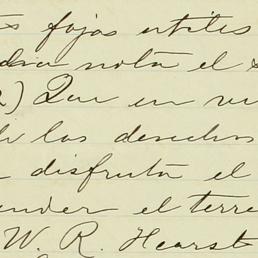 s fojas utiles
dra nota el s
2) Que en vi
de los derechos
disfruta el
ender el terre
W. R. Hearst